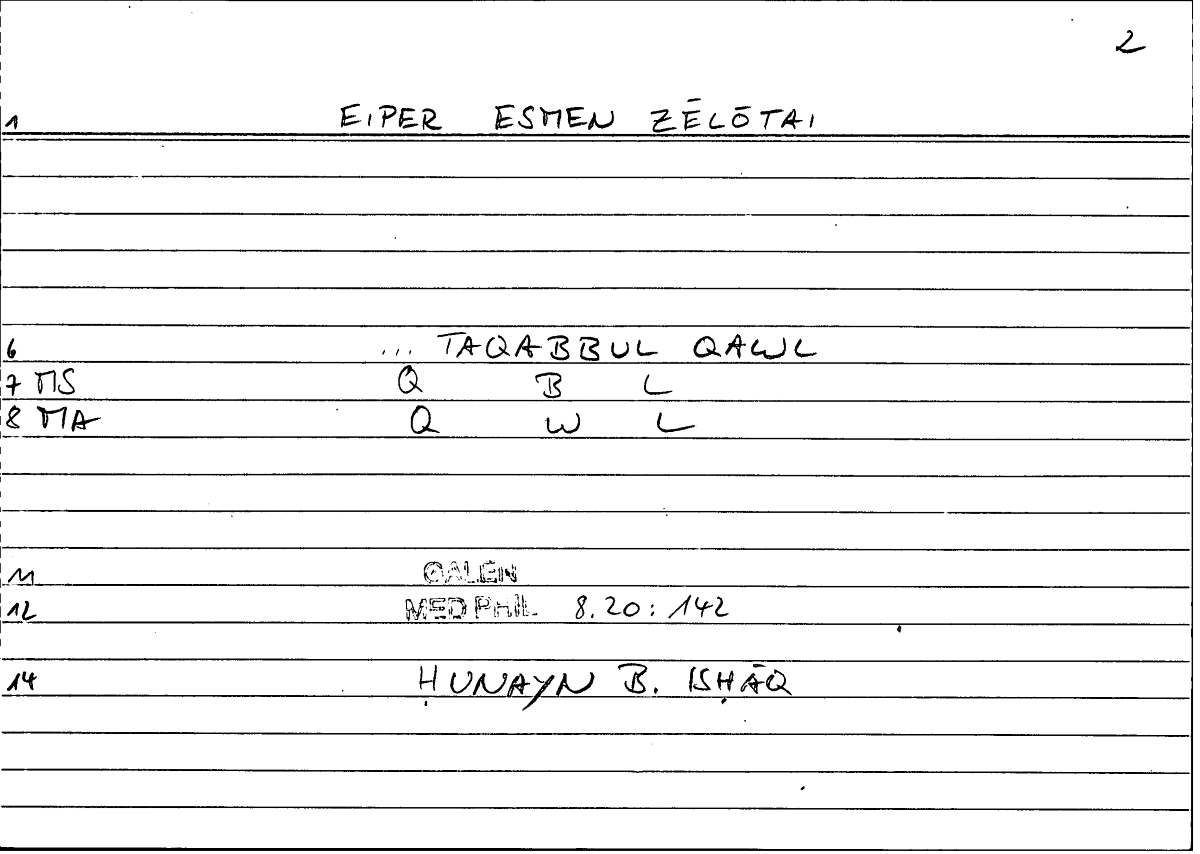 2
1 EIPER ESMEN ZĒLŌTAI
6 ... TAQABBUL QAWL
7 MS Q B L
8 MA Q W L
11 GALEN
12 MED PHIL 8.20: 142
14 ḤUNAYN B. ISḤĀQ